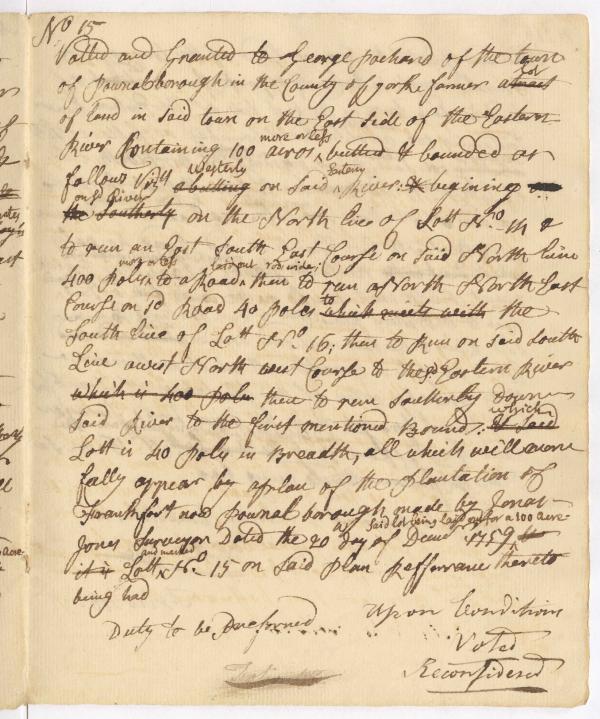 No 15
Voted and Granted to George pochard of the town
of pownalborough in the County of york farmer a tract Lot
of land in said town on the East side of the Eastern
River Containing 100 acros more or less butted & bounded as
follows Viz Westerly a butting on said Eastery River: & begining
on sd River the Southerly on the North line of Lott No 14 &
to run an East South East Course on said North line
400 poles more or less to a Road laid out rod wide; then to run a North North East
Course on sd Road 40 poles to which meets with the
South line of Lott No 16; then to Run on said South
Line a west North west Course to the sd Eastern River
which is 400 poles then to run Southerly Down
said River to the first mentioned Bound: which It said
Lott is 40 poles in Breadth, all which will more
fully appear by a plan of the plantation of
Frankfort now pownalborough made by Jonas
Jones Surveyor Dated the 20 day of Decemr 1759 said lot being laid out for a 100 acre
it is and marked Lott No 15 on said plan Refferrance thereto
being had
Upon Conditions
Duty to be Performed
Voted
Reconsidered